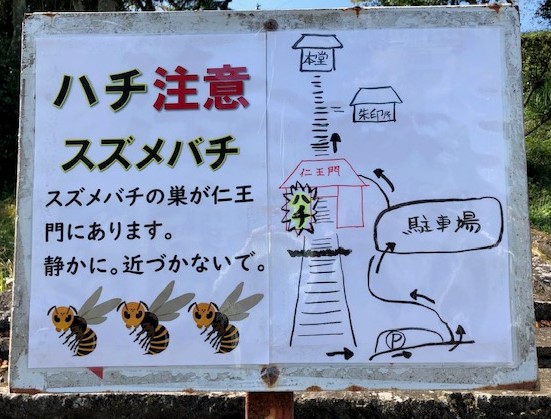 ハチ注意
スズメバチ
スズメバチの巣が仁王
門にあります。
静かに。近づかないで。
本堂
朱印所
仁王門
ハチ
駐車場
P